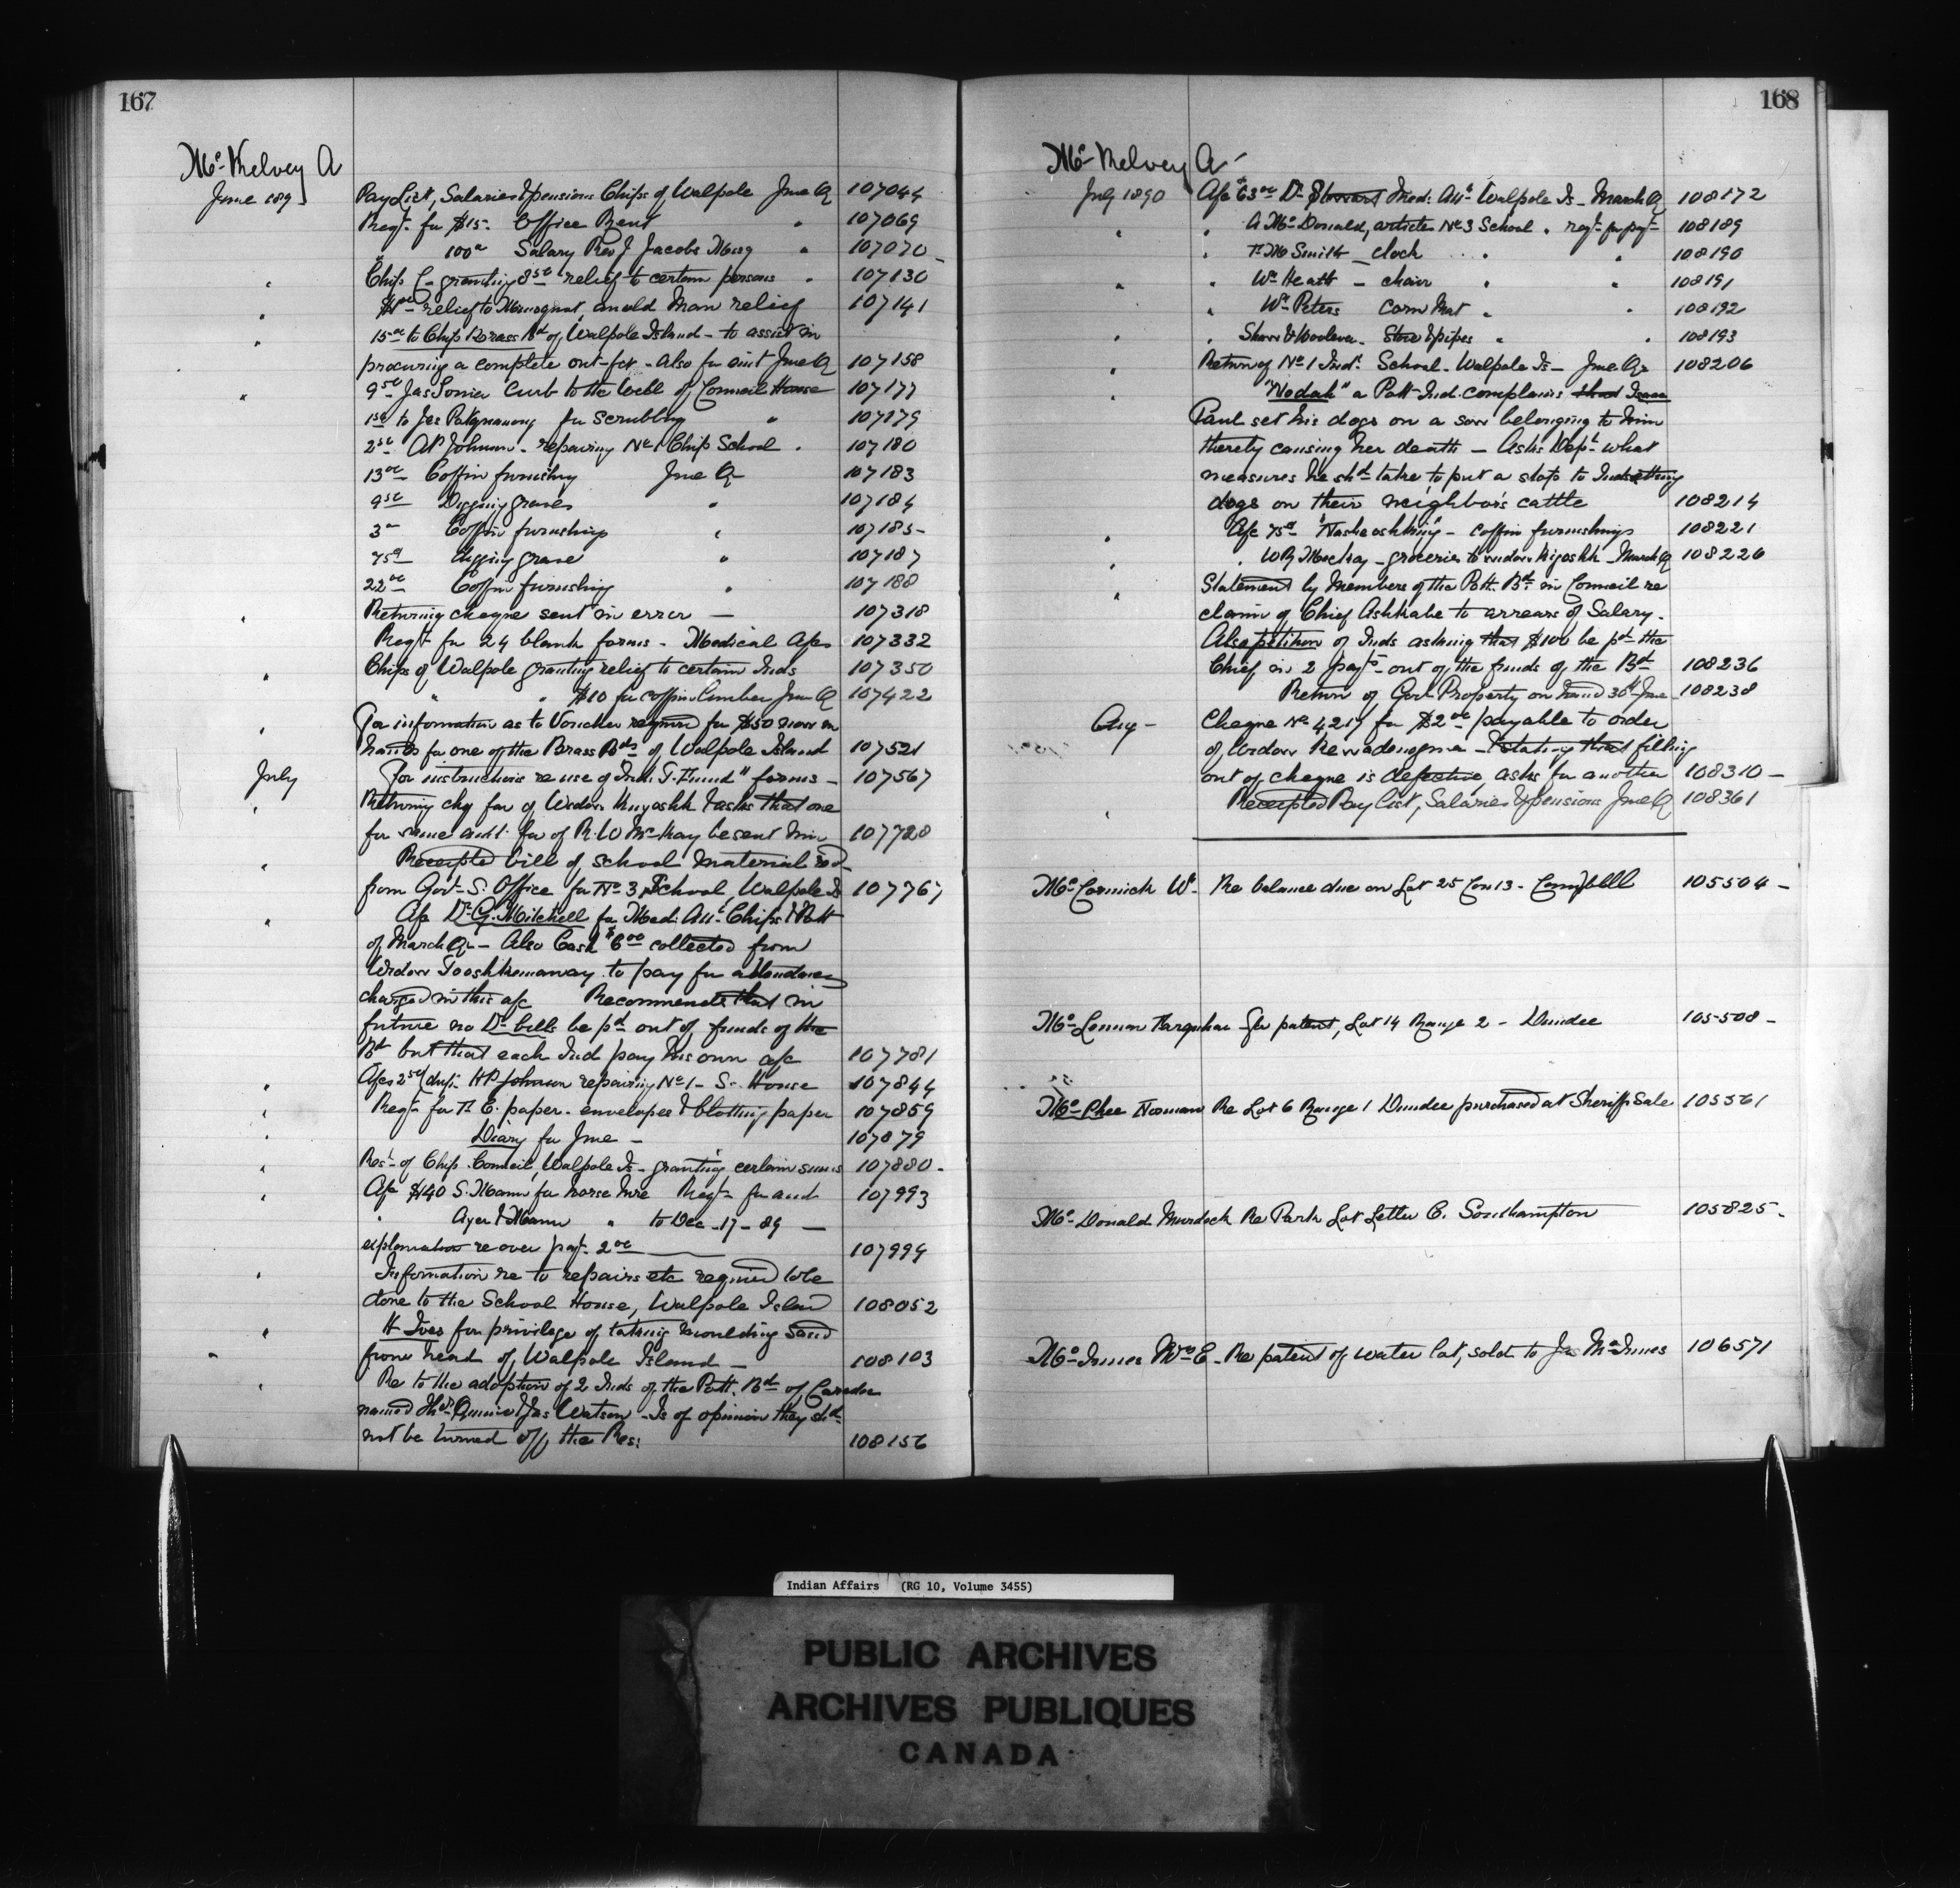 167
McKelvey A
June 1890
Pay List, Salaries & pensions Chips of Walpole June Q 107044
Reqn for $15- Office Rent " 107069
" 100 00 Salary Rev J Jacobs Missy " 107070
" Chips C- granting 8 50 relief to certain persons " 107130
" relief to an old man relief 107141
" 15 00 to Chips Brass Bd of Walpole Island - to assist in
procuring a complete out-fit - also for aint June Q 107158
" 9 50 Jas Sonia Curb to the Well of Council House 107177
1 50 to Jas for Scrubbing " 107179
2 50 Johnson - repairing No 1 Chip School " 107180
13 00 Coffin furnishing June Q 107183
9 50 Digging graves " 107184
3 00 Coffin furnishings " 107185
75c digging grave " 107187
22 00 Coffin furnishing " 107188
" Returning cheque sent in error — 107318
Reqn for 24 blank forms - Medical A/cs 107332
" Chips of Walpole granting relief to certain Inds 107350
" " $10 for coffin lumber June Q 107422
" For information as to Voucher required for $50 now in
hands for one of the Brass Bds of Walpole Island 107521
July For instructions re use of "Ind. T. Fund" forms — 107567
" Returning chq fav of Widow Kiyoshk & asks that one
for same amt. fav of R. W McKay be sent him 107728
" Receipted bill of school material recd
from Govt S. Office for No 3 School Walpole Is 107767
" A/c Dr G. Mitchell for Med: Attce Chips & Pott
of March Qr — Also Cash $6 00 collected from
Widow Tooshkenaway to pay for attendance
charged in this a/c Recommends that in
future no Dr bills be pd out of funds of the
Bd but that each Ind pay his own a/c 107781
" A/cs 2 50 dup: H P Johnson repairing No 1 - S. House 107844
" Reqn for paper - envelopes & blotting paper 107859
" Diary for June — 107879
" Rest of Chip. Council, Walpole Is - granting certain sums 107880
" A/c $140 S. Mann for horse hire Reqn for and 107993
" Ayer & Mann " to Dec - 17 - 89 —
explanation re over payt 2 00 107994
" Information re to repairs etc required to be
done to the School House, Walpole Island 108052
" H Ives for privilege of taking moulding sand
from head of Walpole Island — 108103
" Re to the adoption of 2 Inds of the Pott. Bd of Caradoc
named & Jas Watson - Is of opinion they shd
not be turned off the Res: 108156
168
McKelvey A
July 1890 A/c $63 00 Dr Stewart Med: Attce Walpole Is - March Q 108172
" " A McDonald, articles No 3 School " reqn for payt 108189
" Smith - clock " " 108190
" " Wm Heath - chair " " 108191
" Wm Peters Corn Mat " " 108192
" " Shaw & Woolever - Stove & pipes " " 108193
" Return of No 1 Ind. School - Walpole Is - June Qr 108206
" "Nodah" a Pott Ind. complains that Isaac
Paul set his dogs on a sow belonging to him
thereby causing her death — Asks Dept what
measures he shd take to put a stop to Inds setting
dogs on their neighbor's cattle 108214
" A/c 75c - coffin furnishings 108221
" " W R MacKay - groceries to widow Kiyoshk - March Q 108226
" Statement by Members of the Pott. Bd in Council re
claim of Chief Ashkabe to arrears of Salary.
Also petition of Inds asking that $100 be pd the
Chief in 2 payts out of the funds of the Bd 108236
Return of Govt Property on hand 30th June 108238
Aug - Cheque No 4,217 for $2 00 payable to order
of Widow - stating that filling
out of cheque is defective asks for another 108310
" Receipted Pay list, Salaries & pensions June Q 108361
McCormick Wm - Re balance due on Lot 25 Con 13 - Campbell 105504
McLennan Farquhar - for patent, Lot 14 Range 2 - Dundee 105508
McPhee Norman Re Lot 6 Range 1 Dundee purchased at Sheriff Sale 105561
McDonald Murdoch Re Park Lot Letter C. Southampton 105825
McInnes Mrs E - Re patent of water lot, sold to Jas McInnes 106571
Indian Affairs (RG 10, Volume 3455)
PUBLIC ARCHIVES
ARCHIVES PUBLIQUES
CANADA